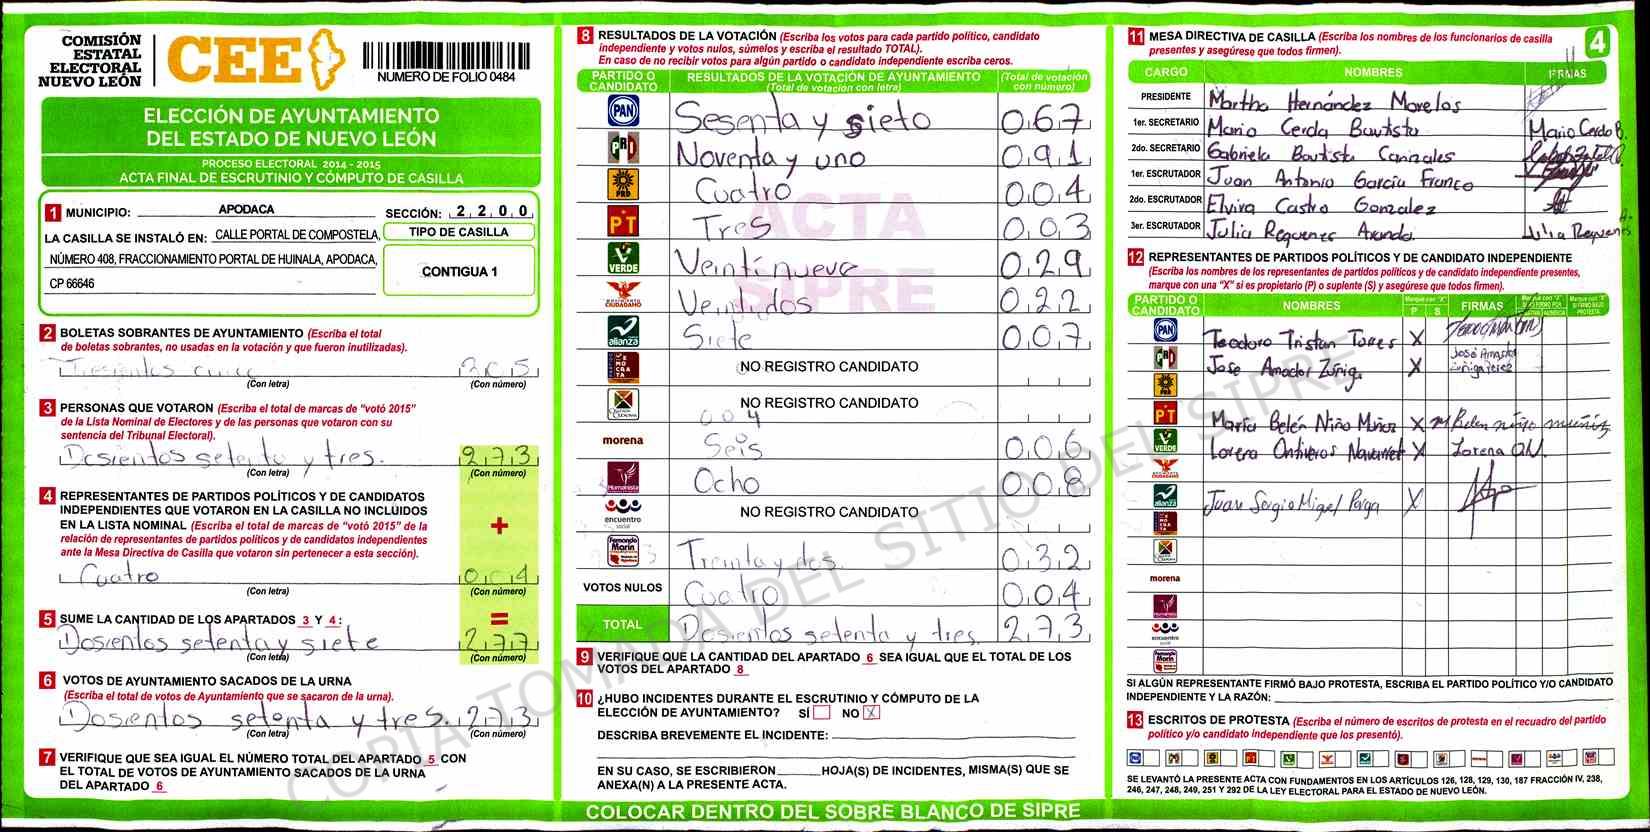 COMISIÓN
ESTATAL
ELECTORAL
NUEVO LEÓN
CEE
NUMERO DE FOLIO 0484
ELECCIÓN DE AYUNTAMIENTO
DEL ESTADO DE NUEVO LEÓN
PROCESO ELECTORAL 2014 - 2015
ACTA FINAL DE ESCRUTINIO Y CÓMPUTO DE CASILLA
1 MUNICIPIO: APODACA SECCIÓN: 2 2 0 0
LA CASILLA SE INSTALÓ EN: CALLE PORTAL DE COMPOSTELA,
NÚMERO 408, FRACCIONAMIENTO PORTAL DE HUINALA, APODACA,
CP 66646
TIPO DE CASILLA
CONTIGUA 1
2 BOLETAS SOBRANTES DE AYUNTAMIENTO (Escriba el total
de boletas sobrantes, no usadas en la votación y que fueron inutilizadas).
(Con letra) (Con número)
3 PERSONAS QUE VOTARON (Escriba el total de marcas de "votó 2015"
de la Lista Nominal de Electores y de las personas que votaron con su
sentencia del Tribunal Electoral).
Dosientos setenta y tres. 2 7 3
(Con letra) (Con número)
4 REPRESENTANTES DE PARTIDOS POLÍTICOS Y DE CANDIDATOS
INDEPENDIENTES QUE VOTARON EN LA CASILLA NO INCLUIDOS
EN LA LISTA NOMINAL (Escriba el total de marcas de "votó 2015" de la
relación de representantes de partidos políticos y de candidatos independientes
ante la Mesa Directiva de Casilla que votaron sin pertenecer a esta sección).
+
Cuatro 0 0 4
(Con letra) (Con número)
=
5 SUME LA CANTIDAD DE LOS APARTADOS 3 Y 4:
Dosientos setenta y siete 2 7 7
(Con letra) (Con número)
6 VOTOS DE AYUNTAMIENTO SACADOS DE LA URNA
(Escriba el total de votos de Ayuntamiento que se sacaron de la urna).
Dosientos setenta y tres. 2 7 3
(Con letra) (Con número)
7 VERIFIQUE QUE SEA IGUAL EL NÚMERO TOTAL DEL APARTADO 5 CON
EL TOTAL DE VOTOS DE AYUNTAMIENTO SACADOS DE LA URNA
DEL APARTADO 6
8 RESULTADOS DE LA VOTACIÓN (Escriba los votos para cada partido político, candidato
independiente y votos nulos, súmelos y escriba el resultado TOTAL).
En caso de no recibir votos para algún partido o candidato independiente escriba ceros.
PARTIDO O CANDIDATO RESULTADOS DE LA VOTACIÓN DE AYUNTAMIENTO (Total de votación con letra) (Total de votación con número)
PAN Sesenta y sieto 0 6 7
PRI Noventa y uno 0 9 1
PRD Cuatro 0 0 4
PT Tres 0 0 3
VERDE Veintinueve 0 2 9
MOVIMIENTO CIUDADANO Veintidos 0 2 2
alianza Siete 0 0 7
DEMOCRATA NO REGISTRO CANDIDATO
NO REGISTRO CANDIDATO
0 0 4
morena Seis 0 0 6
Humanista Ocho 0 0 8
encuentro social NO REGISTRO CANDIDATO
Fernando Marín Treinta y dos. 0 3 2
VOTOS NULOS Cuatro 0 0 4
TOTAL Dosientos setenta y tres. 2 7 3
ACTA
SIPRE
9 VERIFIQUE QUE LA CANTIDAD DEL APARTADO 6 SEA IGUAL QUE EL TOTAL DE LOS
VOTOS DEL APARTADO 8
10 ¿HUBO INCIDENTES DURANTE EL ESCRUTINIO Y CÓMPUTO DE LA
ELECCIÓN DE AYUNTAMIENTO? SÍ NO X
DESCRIBA BREVEMENTE EL INCIDENTE:
EN SU CASO, SE ESCRIBIERON HOJA(S) DE INCIDENTES, MISMA(S) QUE SE
ANEXA(N) A LA PRESENTE ACTA.
COLOCAR DENTRO DEL SOBRE BLANCO DE SIPRE
11 MESA DIRECTIVA DE CASILLA (Escriba los nombres de los funcionarios de casilla
presentes y asegúrese que todos firmen).
4
CARGO NOMBRES FIRMAS
PRESIDENTE Martha Hernández Morelos
1er. SECRETARIO Mario Cerda Bautista Mario Cerda B.
2do. SECRETARIO Gabriela Bautista Canizales
1er. ESCRUTADOR Juan Antonio García Franco
2do. ESCRUTADOR Elvira Castro Gonzalez
3er. ESCRUTADOR Julia Requenes Aranda. Julia Requenes
12 REPRESENTANTES DE PARTIDOS POLÍTICOS Y DE CANDIDATO INDEPENDIENTE
(Escriba los nombres de los representantes de partidos políticos y de candidato independiente presentes,
marque con una "X" si es propietario (P) o suplente (S) y asegúrese que todos firmen).
PARTIDO O CANDIDATO NOMBRES Marque con "X" P S FIRMAS
PAN Teodoro Tristan Torres X
PRI Jose Amador Zúñiga X José Amador
PRD
PT María Belén Niño Muñoz X M Belen niño muñoz
VERDE Lorena Ontiveros Navarret X Lorena O.N.
alianza Juan Sergio Miguel Parga X
morena
encuentro social
Fernando Marín
SI ALGÚN REPRESENTANTE FIRMÓ BAJO PROTESTA, ESCRIBA EL PARTIDO POLÍTICO Y/O CANDIDATO
INDEPENDIENTE Y LA RAZÓN:
13 ESCRITOS DE PROTESTA (Escriba el número de escritos de protesta en el recuadro del partido
político y/o candidato independiente que los presentó).
SE LEVANTÓ LA PRESENTE ACTA CON FUNDAMENTOS EN LOS ARTÍCULOS 126, 128, 129, 130, 187 FRACCIÓN IV, 238,
246, 247, 248, 249, 251 Y 292 DE LA LEY ELECTORAL PARA EL ESTADO DE NUEVO LEÓN.
COPIA TOMADA DEL SITIO DEL SIPRE